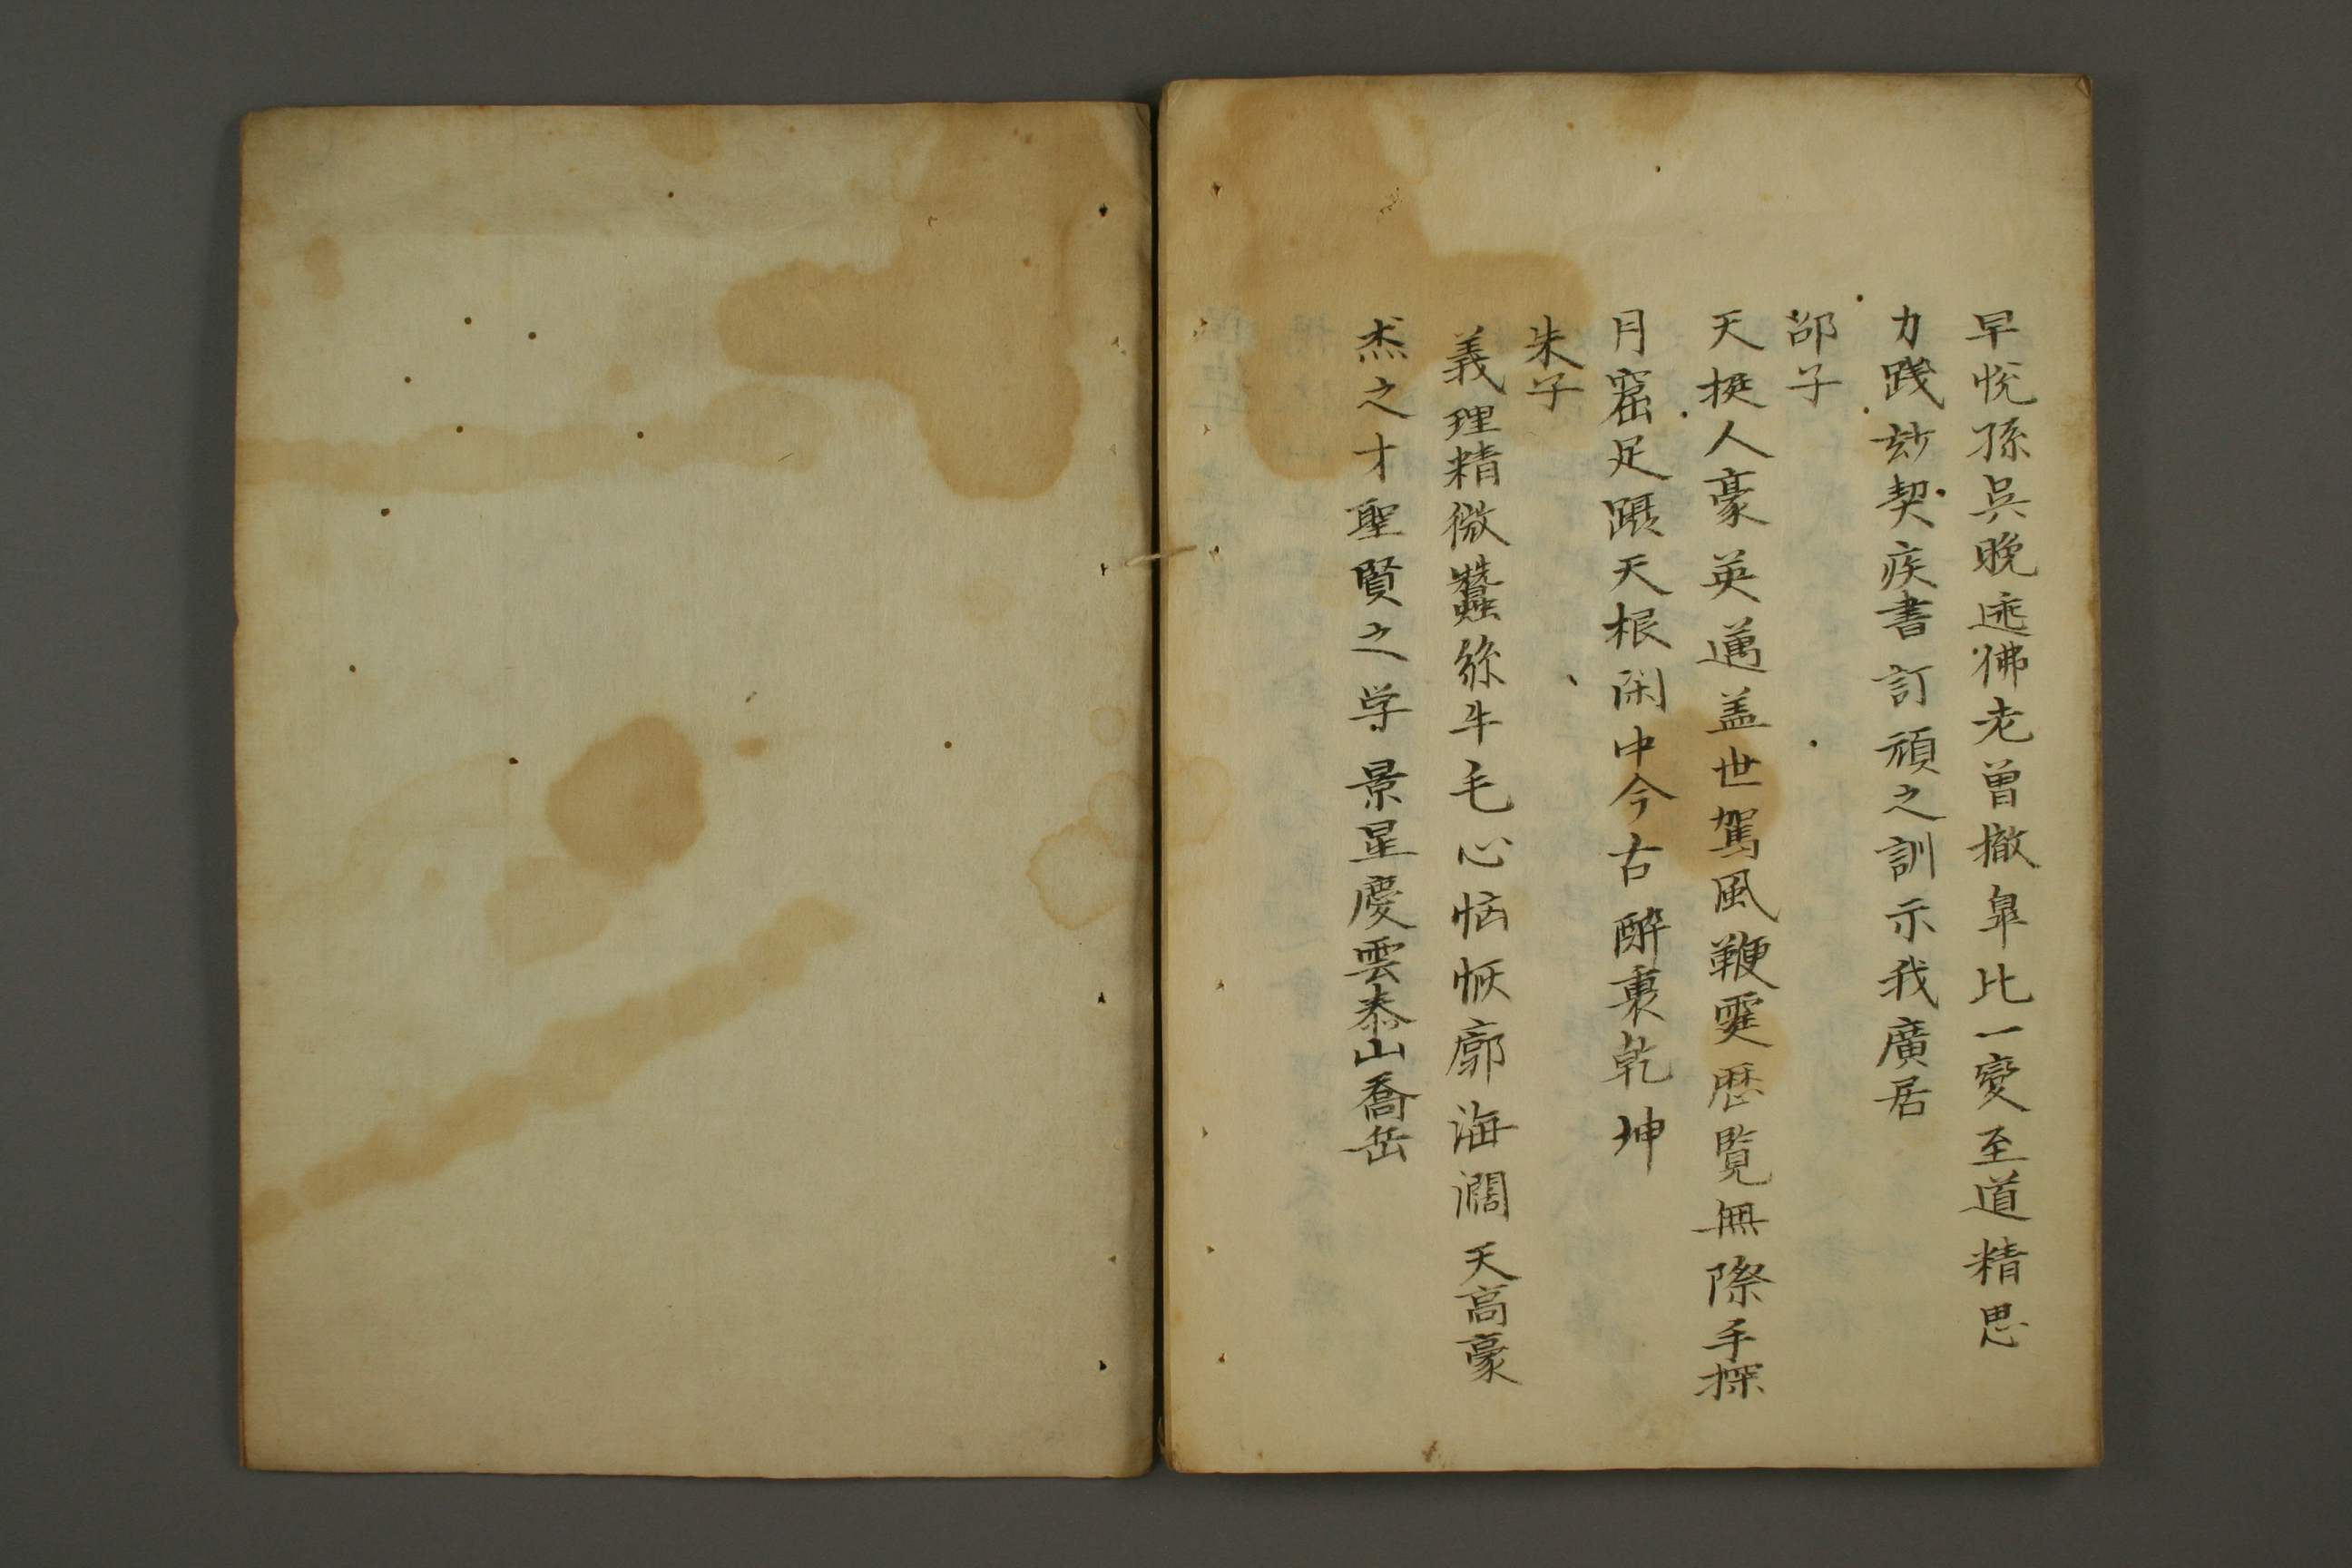 早悅孫吳晚逃佛老曾撤皐比一變至道精思
力踐玅契疾書訂頑之訓示我廣居
邵子
天挺人豪英邁盖世駕風鞭霆歷覽無際手探
月窟足躡天根闲中今古醉裏乾坤
朱子
義理精微蠶絲牛毛心恢廓海濶天高豪
杰之才聖賢之学景星慶雲泰山喬岳